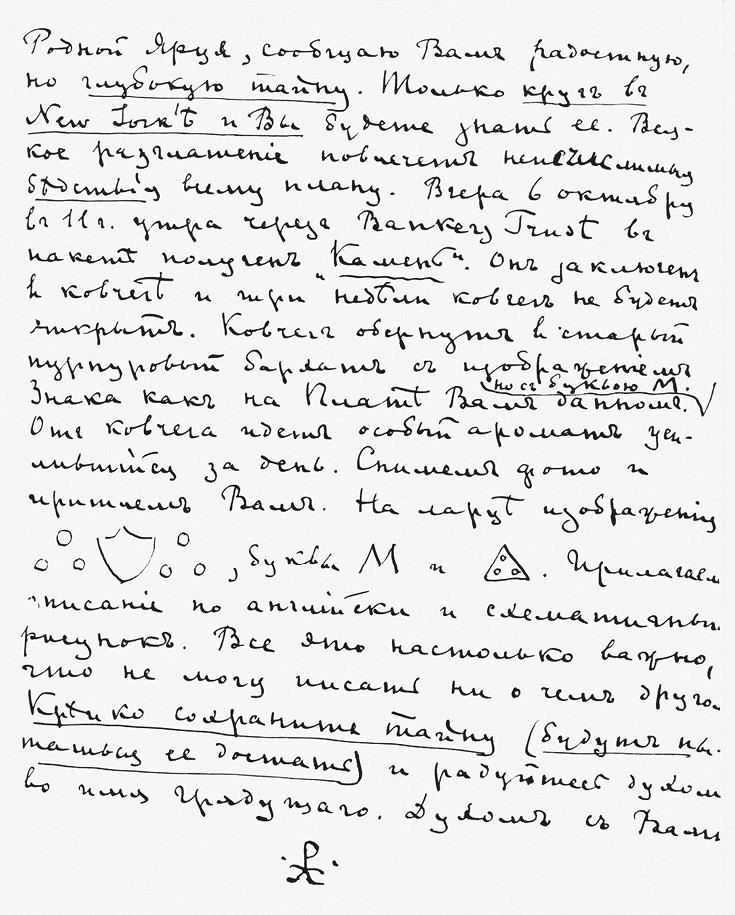 Родной Яруя, сообщаю Вамъ радостную,
но глубокую тайну. Только кругъ въ
New York'ѣ и Вы будете знать ее. Вся-
кое разглашеніе повлечетъ неисчислимыя
бѣдствія всему плану. Вчера 6 октября
въ 11 г. утра черезъ Bankers Trust въ
пакетѣ полученъ „Камень“. Онъ заключенъ
въ ковчегѣ и три недѣли ковчегъ не будетъ
открытъ. Ковчегъ обернутъ въ старый
пурпуровый бархатъ съ изображеніемъ
но съ буквою М.
Знака какъ на Платѣ Вамъ данномъ.
Отъ ковчега идетъ особый ароматъ уси-
лившійся за день. Снимемъ фото и
пришлемъ Вамъ. На ларцѣ изображенія
, буквы М и . Прилагаем
описаніе по англійски и схематичный
рисунокъ. Все это настолько важно,
что не могу писать ни о чемъ друго
Крѣпко сохраните тайну (будутъ пы-
таться ее достать) и радуйтесь духом
во имя Грядущаго. Духомъ съ Вами